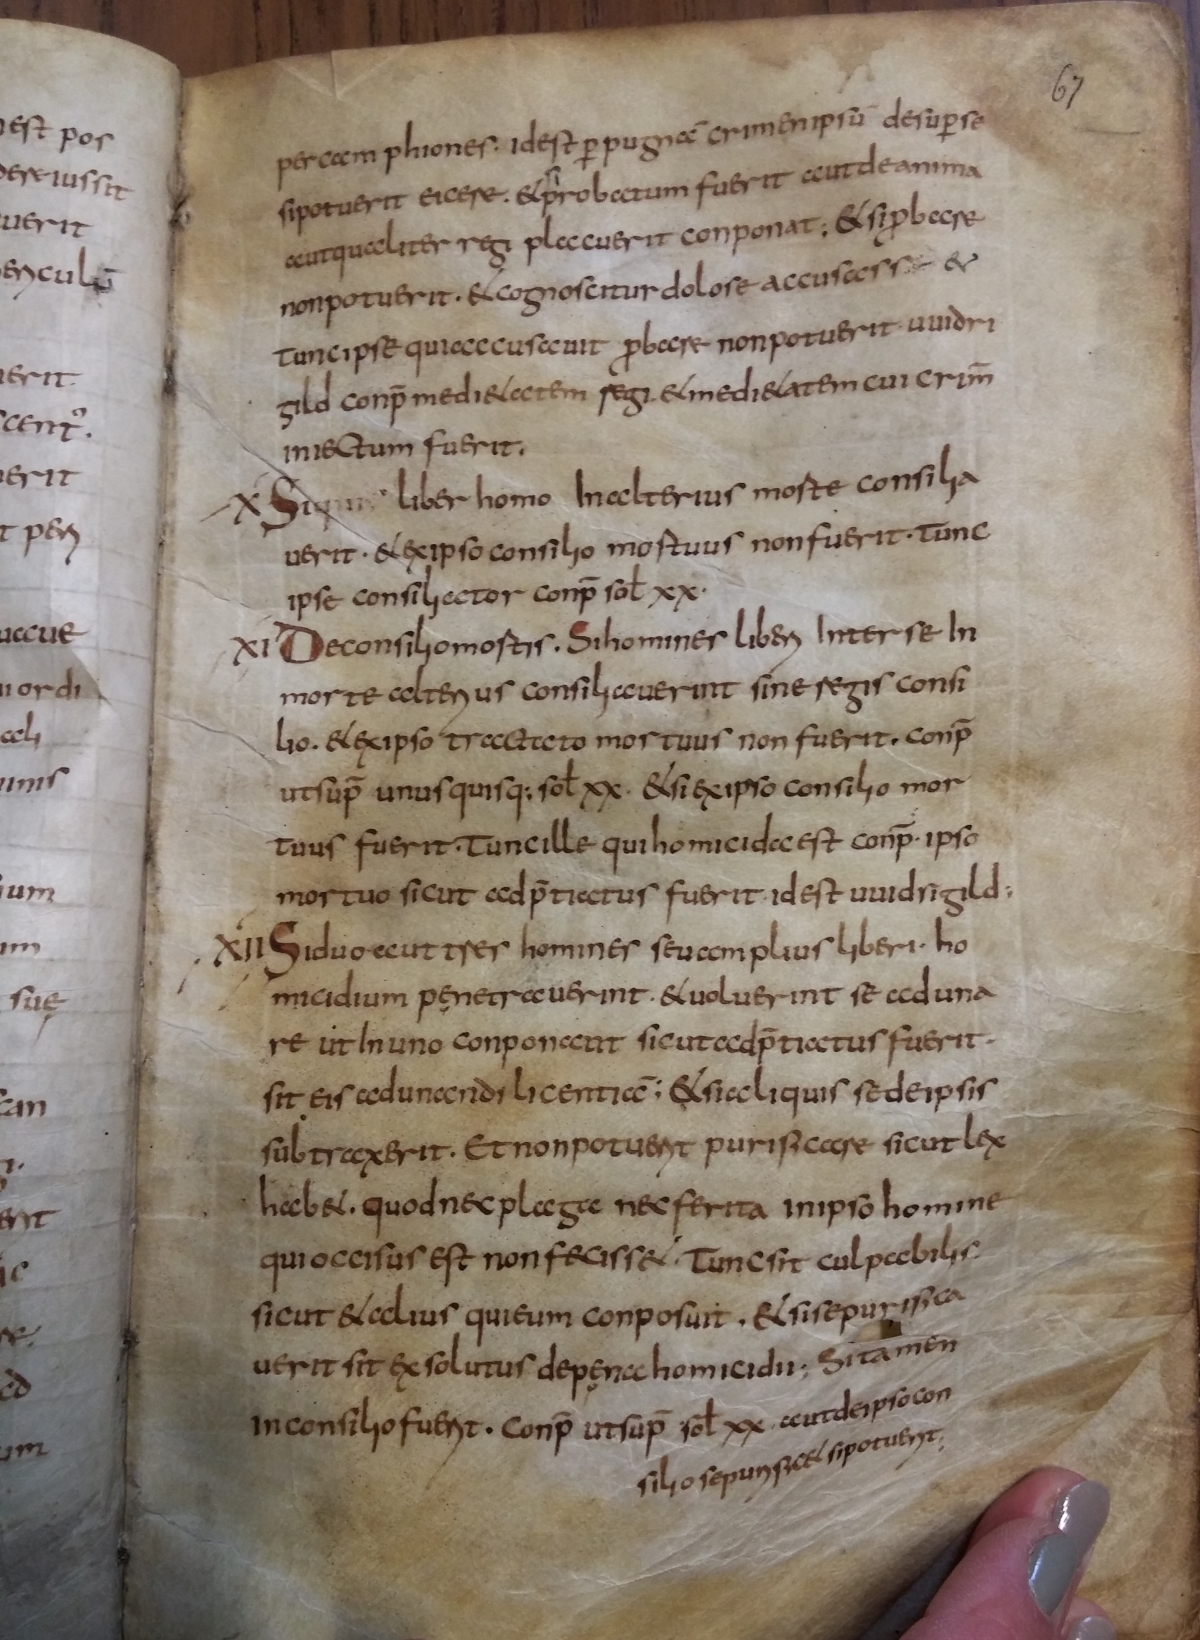 est pos
iussit
uerit
uerit
uerit
67
per camphiones. id est p̄ pugnā crimen ipsū desup̄ se
si potuerit eicere. & si probatum fuerit aut de anima
aut qualiter regi placuerit conponat; & si ꝓbare
non potuerit. & cognoscitur dolose accusasse &
tunc ipse qui accusauit ꝓbare non potuerit uuidri
gild conp̄ medi&atem regi. & medi&atem cui crim̄
iniectum fuerit.
X Siquis liber homo In alterius morte consilia
uerit. & ex ipso consilio mortuus non fuerit. Tunc
ipse consiliator conp̄ sol̄ xx.
XI De consilio mortis. Si homines liberi Inter se In
morte alterius consiliauerint sine regis consi
lio. & ex ipso tractato mortuus non fuerit. conp̄
ut sup̄ unus quisq; sol̄ xx. & si ex ipso consilio mor
tuus fuerit. Tunc ille qui homicida est conp̄. ipso
mortuo sicut adp̄tiatus fuerit id est uuidrigild;
XII Si duo aut tres homines seu amplius liberi. ho
micidium penetrauerint. & uoluerint se aduna
re ut In uno conponant sicut adp̄tiatus fuerit.
sit eis adunandi licentiā; & si aliquis se de ipsis
subtraxerit. Et non potuerit purificare sicut lex
hab&. quod nec plaga nec ferita in ipso homine
qui occisus est non feciss&. Tunc sit culpabilis
sicut & alius qui eum conposuit. & si se purifica
uerit sit exsolutus de pena homicidii; Si tamen
in consilio fuerit. conp̄ ut sup̄ sol̄ xx. aut de ipso con
silio se purific& si potuerit;